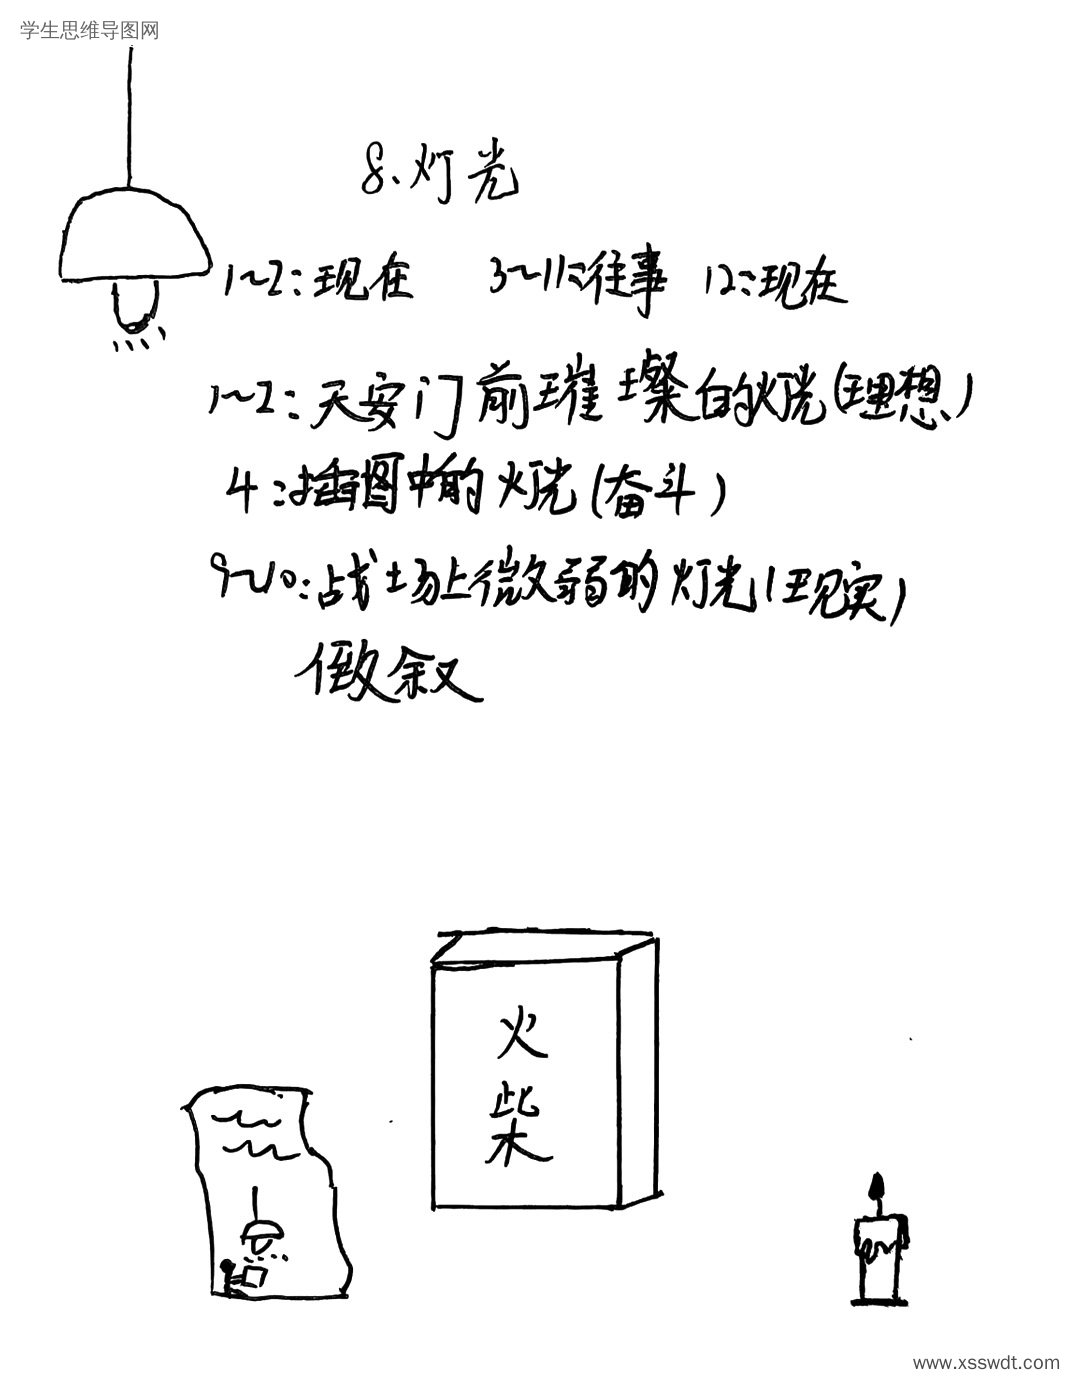 学生思维导图网
8、灯光
1~2：现在 3~11：往事 12：现在
1~2：天安门前璀璨的灯光(理想)
4：插图中的灯光(奋斗)
9~10：战场上微弱的灯光(现实)
倒叙
火
柴
www.xsswdt.com